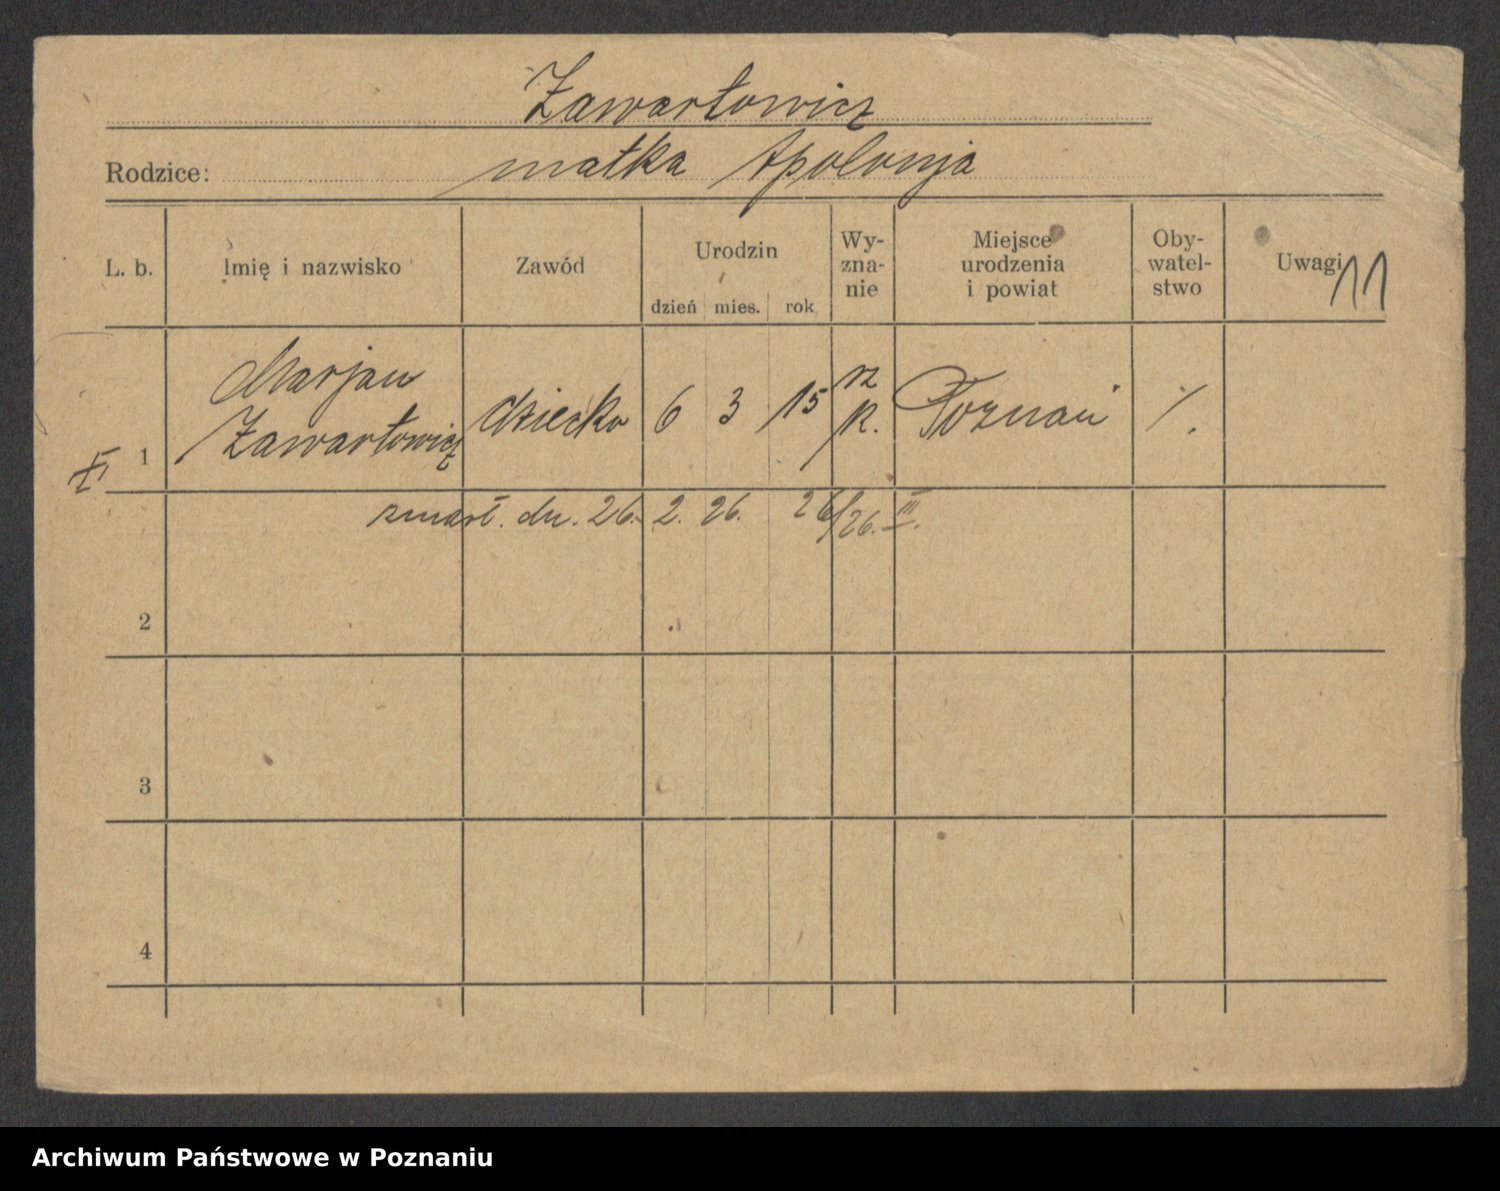 Zawartowicz
Rodzice: matka Apolonja
L. b. Imię i nazwisko Zawód Urodzin dzień mies. rok Wy-zna-nie Miejsce urodzenia i powiat Oby-watel-stwo Uwagi 11
Marjan
Zawartowicz dziecko 6 3 15 rz k. Poznań ·/.
1
zmarł. dn. 26. 2. 26. 26/26. III.
2
3
4
Archiwum Państwowe w Poznaniu